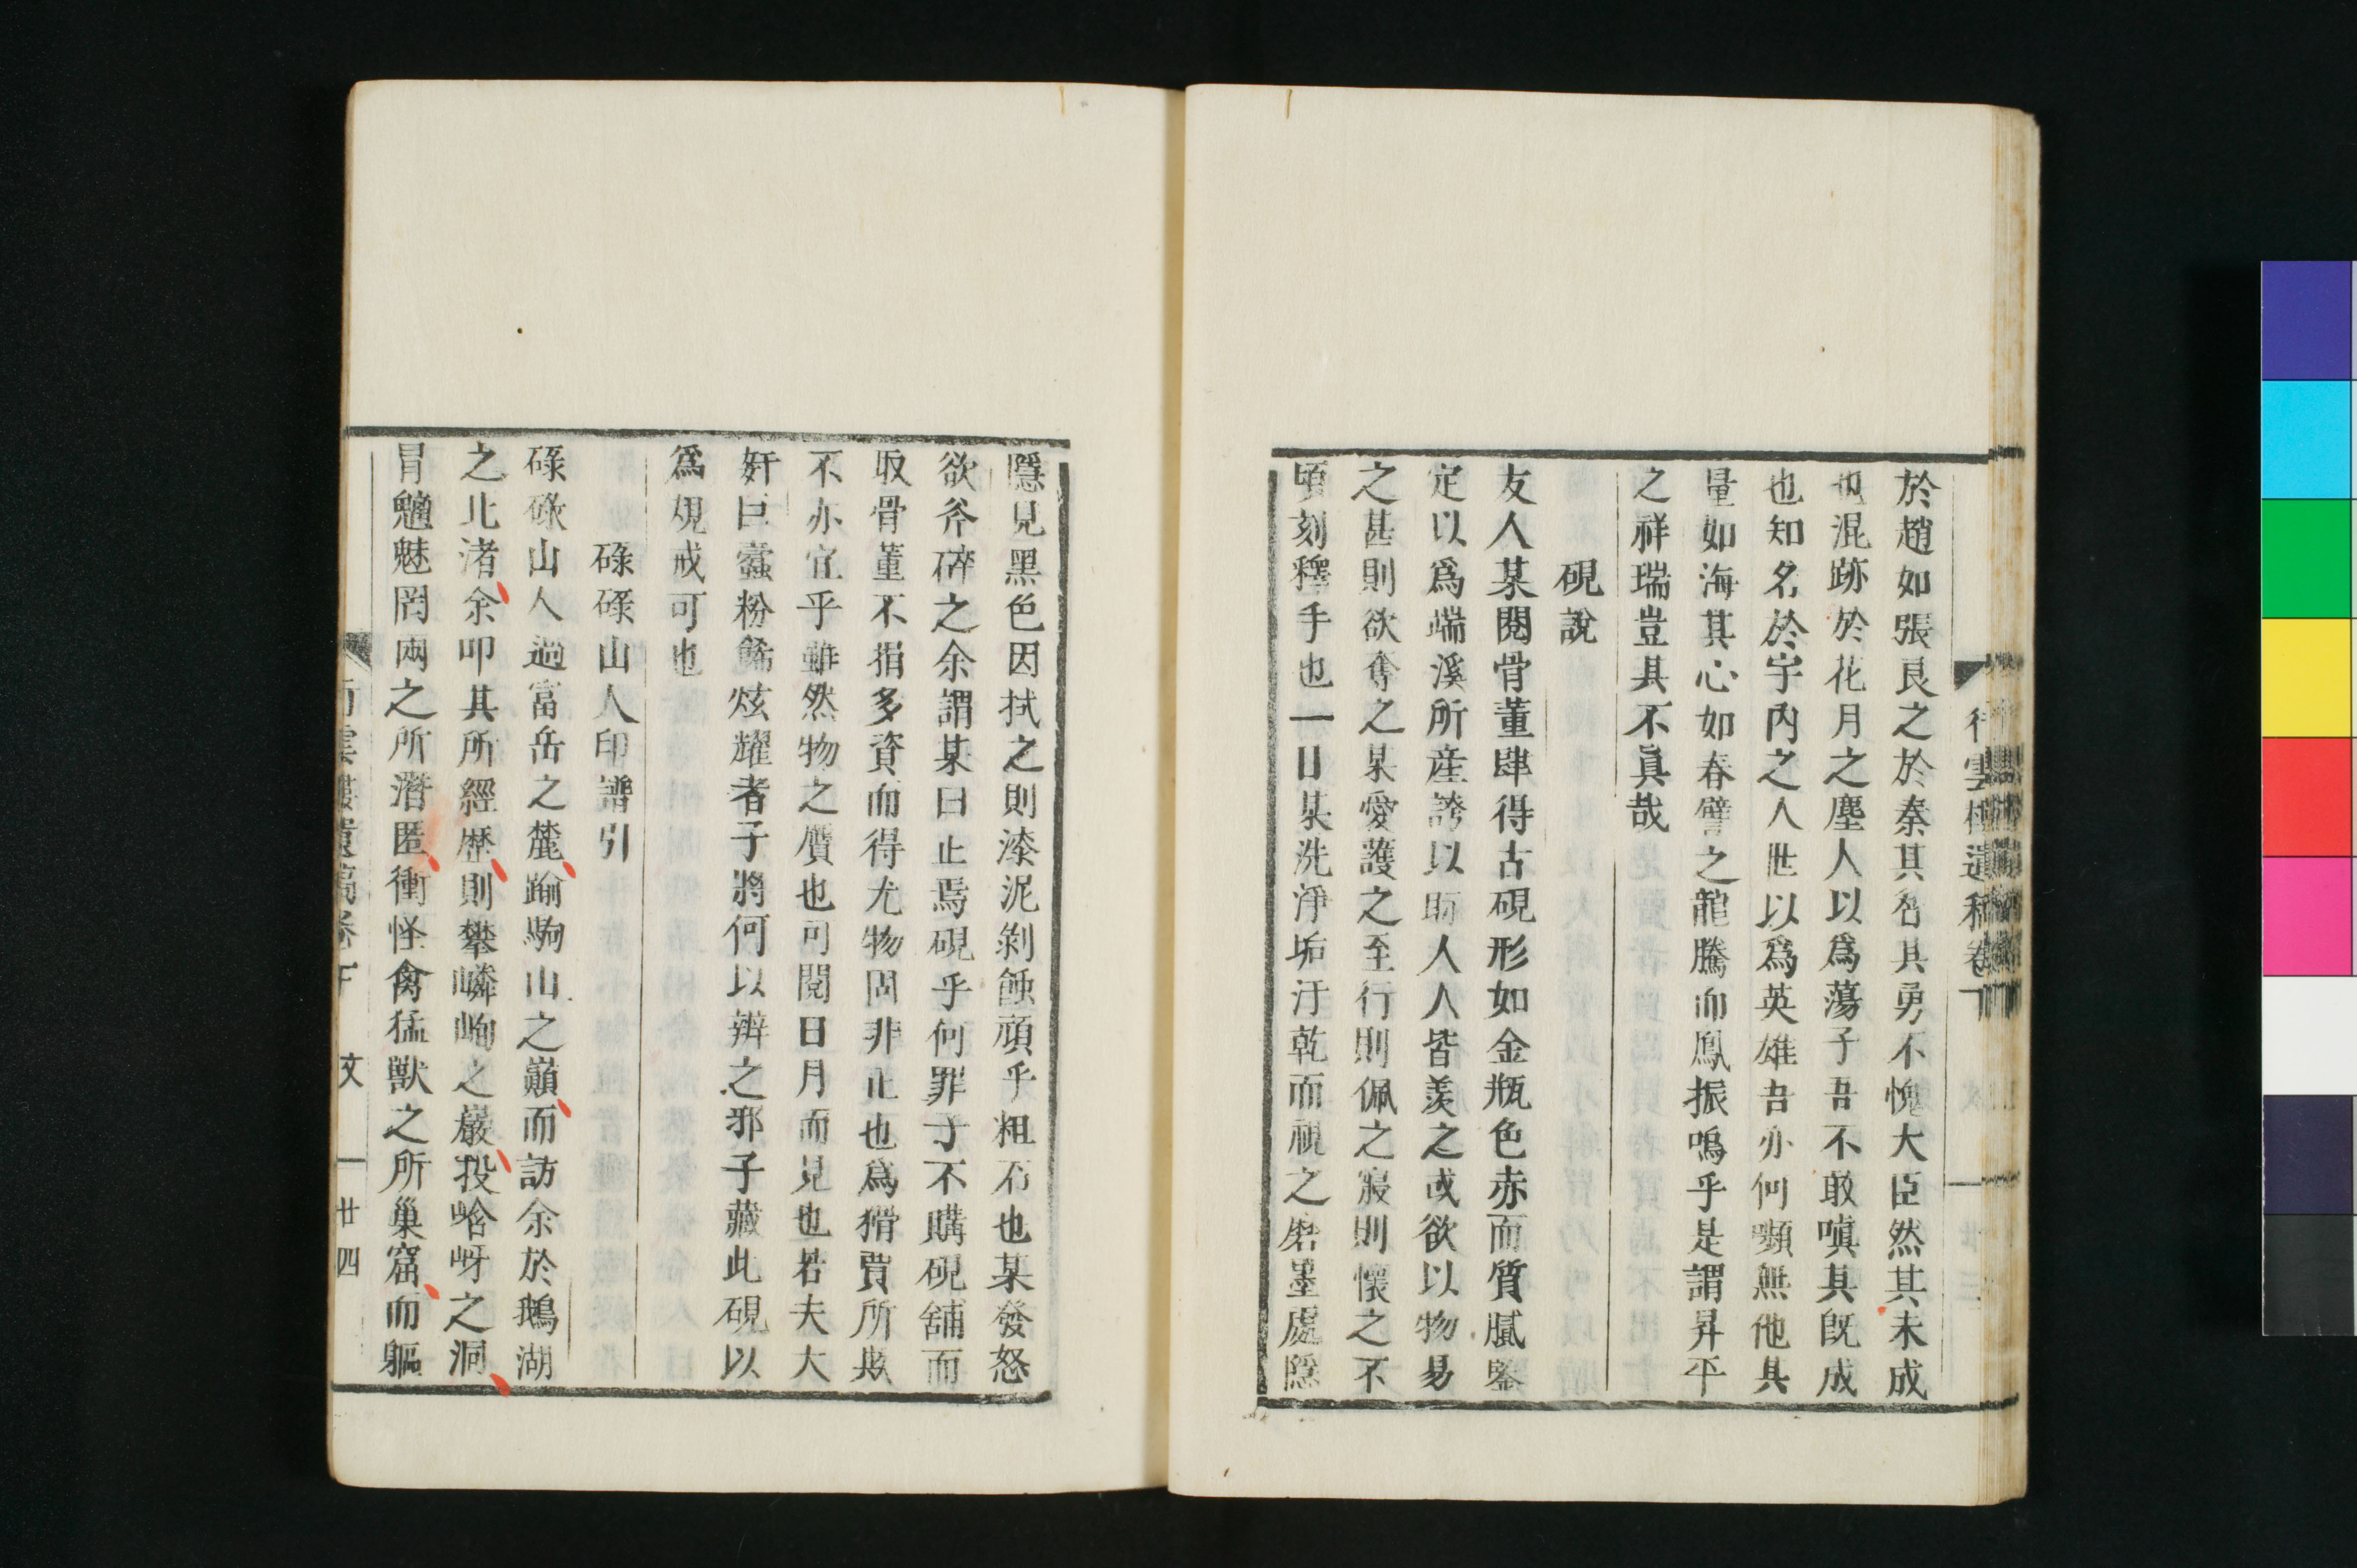 於趙如張良之於秦其智其勇不愧大臣然其未成
也混跡於花月之塵人以爲蕩子吾不敢嗔其既成
也知名於宇內之人世以爲英雄吾亦何嚬無他其
量如海其心如春譬之龍騰而鳳振嗚乎是謂昇平
之祥瑞豈其不眞哉
硯說
友人某閱骨董肆得古硯形如金瓶色赤而質膩鑒
定以爲端溪所産誇以眎人人皆羨之或欲以物易
之甚則欲奪之某愛護之至行則佩之寢則懷之不
頃刻釋手也一日某洗淨垢汙乾而視之磨墨處隱
隱見黑色因拭之則漆泥剝蝕頑乎粗石也某發怒
欲斧碎之余謂某曰止焉硯乎何罪于不購硯舖而
取骨董不損多資而得尤物固非正也爲猾賈所欺
不亦宜乎雖然物之贋也可閱日月而見也若夫大
奸巨蠹粉飾炫耀者子將何以辨之邪子藏此硯以
爲規戒可也
碌碌山人印譜引
碌碌山人過富岳之麓踰駒山之巓而訪余於鵝湖
之北渚余叩其所經歷則攀嶙峋之巖投谽谺之洞
冒魑魅罔兩之所潛匿衝怪禽猛獸之所巢窟而軀
行雲樓遺稿卷下 文 廿四